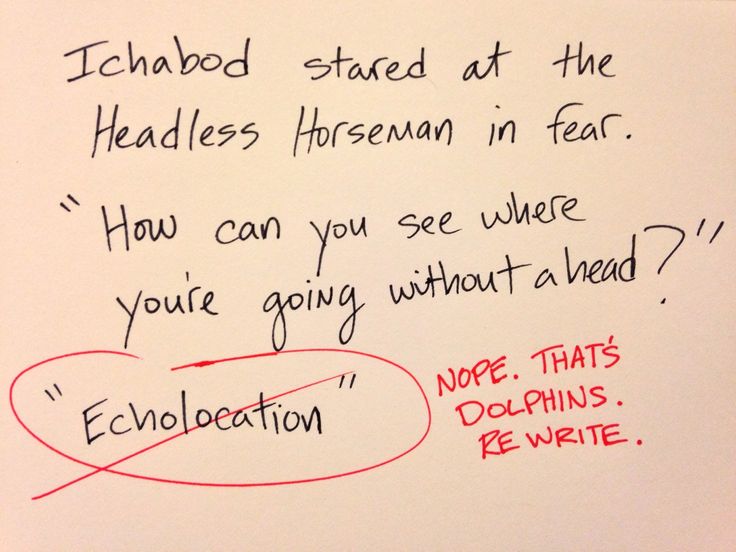 Ichabod stared at the
Headless Horseman in fear.
"How can you see where
you're going without a head?"
"Echolocation"
NOPE. THAT'S
DOLPHINS.
REWRITE.